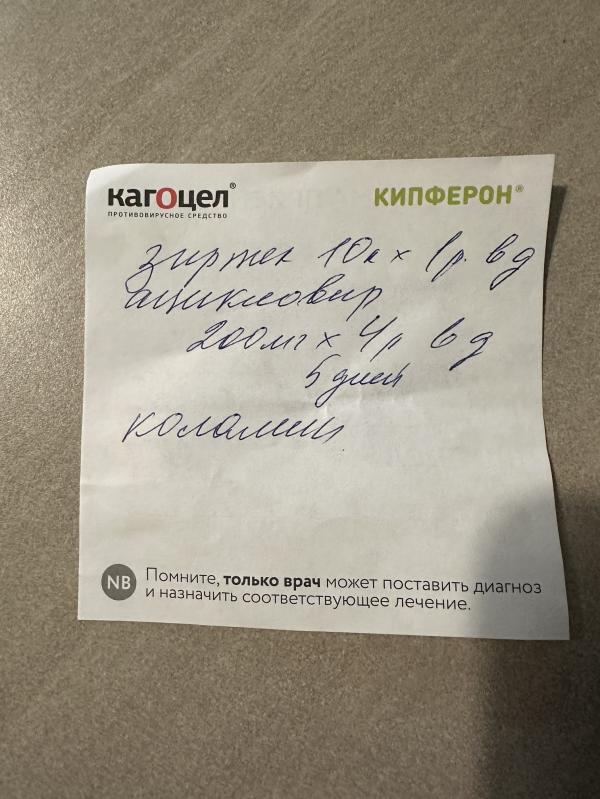 кагоцел®
ПРОТИВОВИРУСНОЕ СРЕДСТВО
КИПФЕРОН®
зиртек 10к х 1р. в д
ацикловир
200мг х 4р в д
5 дней
каламин
NB
Помните, только врач может поставить диагноз
и назначить соответствующее лечение.